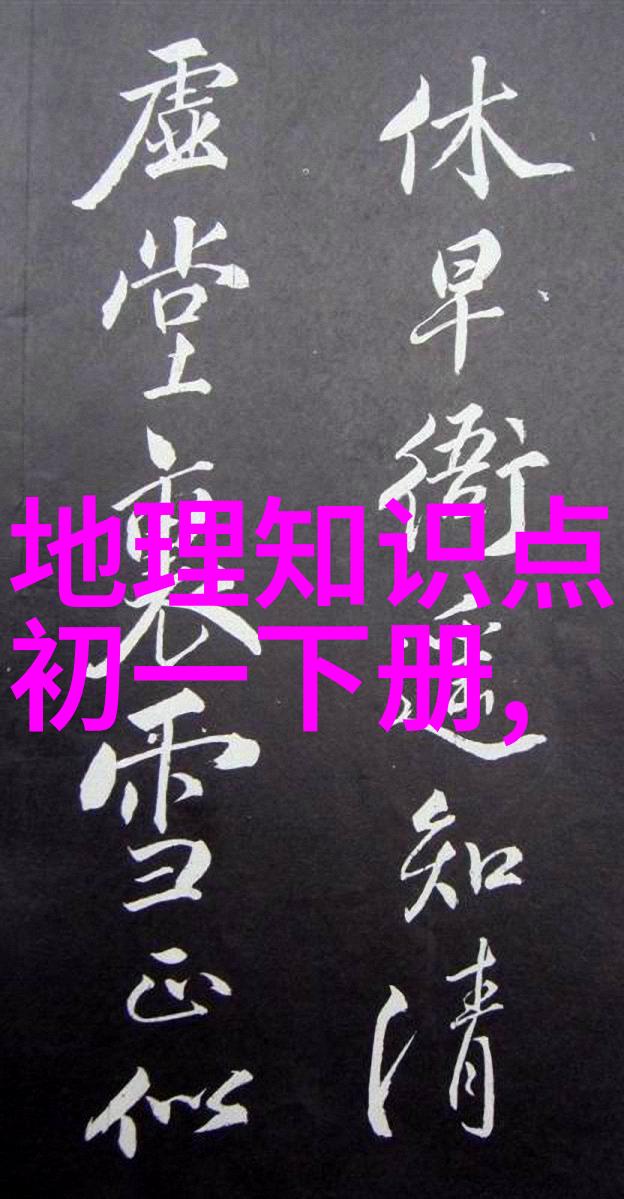 休早衙遥知清
虚堂裏雪正似
地理知识点
初一下册,